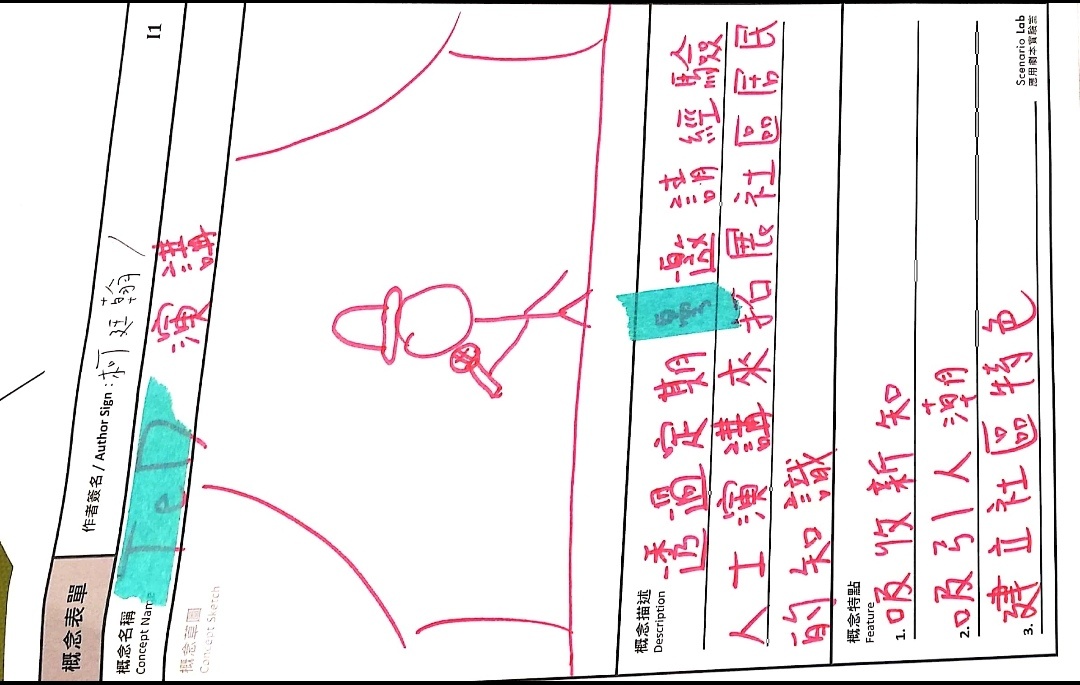 概念表單
作者簽名 / Author Sign : 柯廷翰
I1
概念名稱
Concept Name
TeD 演講
概念草圖
Concept Sketch
概念描述
Description
透過定期 邀請經驗
人工演講來拓展社區居民
的知識
概念特點
Feature
1. 吸收新知
2. 吸引人潮
3. 建立社區特色
Scenario Lab
應用劇本實驗室